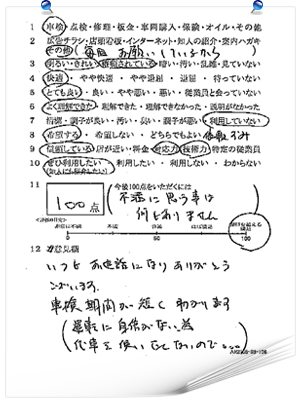 1 車検・点検・修理・板金・車両購入・保険・オイル・その他
2 広告チラシ・店頭看板・インターネット・知人の紹介・案内ハガキ
その他( 毎回お願いしているから
3 明るい・きれい・整頓されている・暗い・汚い・乱雑・見ていない
4 快適・やや快適・やや退屈・退屈・待っていない
5 とても良い・良い・やや悪い・悪い・従業員と会っていない
6 よく理解できた・理解できた・理解できなかった・説明がなかった
7 清潔・調子が良い・汚い・臭い・調子が悪い・利用していない
8 希望する・希望しない・どちらでもよい
9 信頼している・店が近い・料金・対応力・技術力・特定の従業員
10 ぜひ利用したい・利用したい・利用しない・わからない
(知人にも勧めたい)
11 今後100点をいただくには
100点
不満に思う事は
何もありません
0 50 100
12 ご意見欄
いつもお世話になりありがとう
ございます。
車検期間が短く わかります
(運転に自信がない為
(代車を使いたくないので。。。)